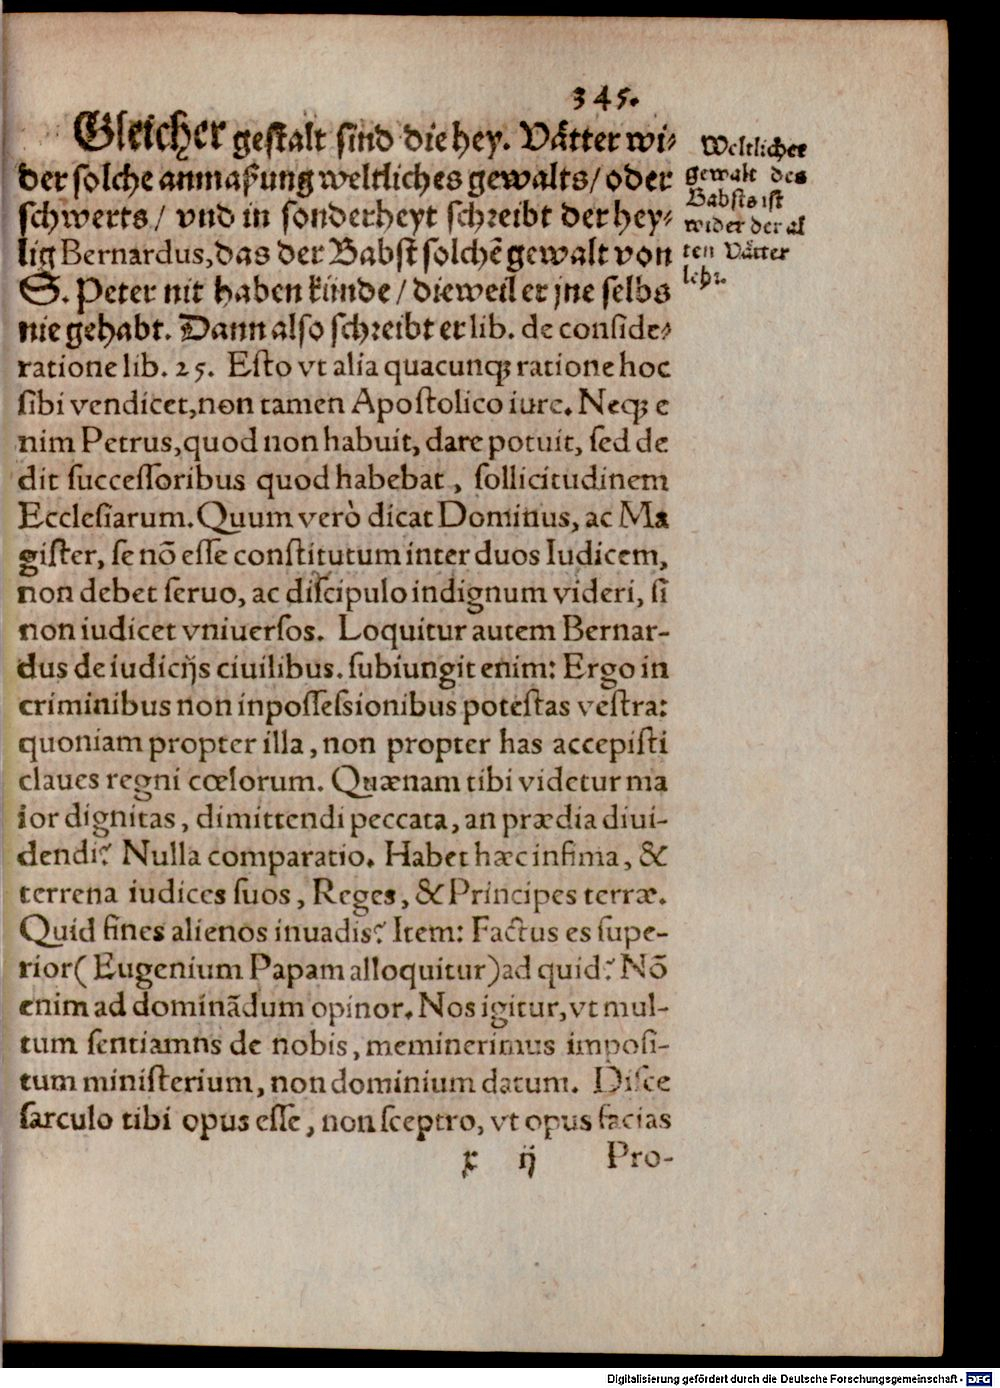 345.
Gleicher gestalt sind die hey. Vätter wi-
der solche anmaßung weltliches gewalts / oder
schwerts / vnd in sonderheyt schreibt der hey-
lig Bernardus, das der Babst solchē gewalt von
S. Peter nit haben künde / dieweil er jne selbs
nie gehabt. Dann also schreibt er lib. de conside-
ratione lib. 25. Esto vt alia quacunq; ratione hoc
sibi vendicet, non tamen Apostolico iure. Neq; e
nim Petrus, quod non habuit, dare potuit, sed de
dit successoribus quod habebat, sollicitudinem
Ecclesiarum. Quum verò dicat Dominus, ac Ma
gister, se nō esse constitutum inter duos Iudicem,
non debet seruo, ac discipulo indignum videri, si
non iudicet vniuersos. Loquitur autem Bernar-
dus de iudicijs ciuilibus. subiungit enim: Ergo in
criminibus non in possessionibus potestas vestra:
quoniam propter illa, non propter has accepisti
claues regni cœlorum. Quænam tibi videtur ma
ior dignitas, dimittendi peccata, an prædia diui-
dendi? Nulla comparatio. Habet hæc infima, &
terrena iudices suos, Reges, & Principes terræ.
Quid fines alienos inuadis? Item: Factus es supe-
rior (Eugenium Papam alloquitur) ad quid? Nō
enim ad dominādum opinor. Nos igitur, vt mul-
tum sentiamns de nobis, meminerimus imposi-
tum ministerium, non dominium datum. Disce
sarculo tibi opus esse, non sceptro, vt opus facias
x ij Pro-
Weltlicher
gewalt des
Babsts ist
wider der al
ten Vätter
lehr.
Digitalisierung gefördert durch die Deutsche Forschungsgemeinschaft - DFG